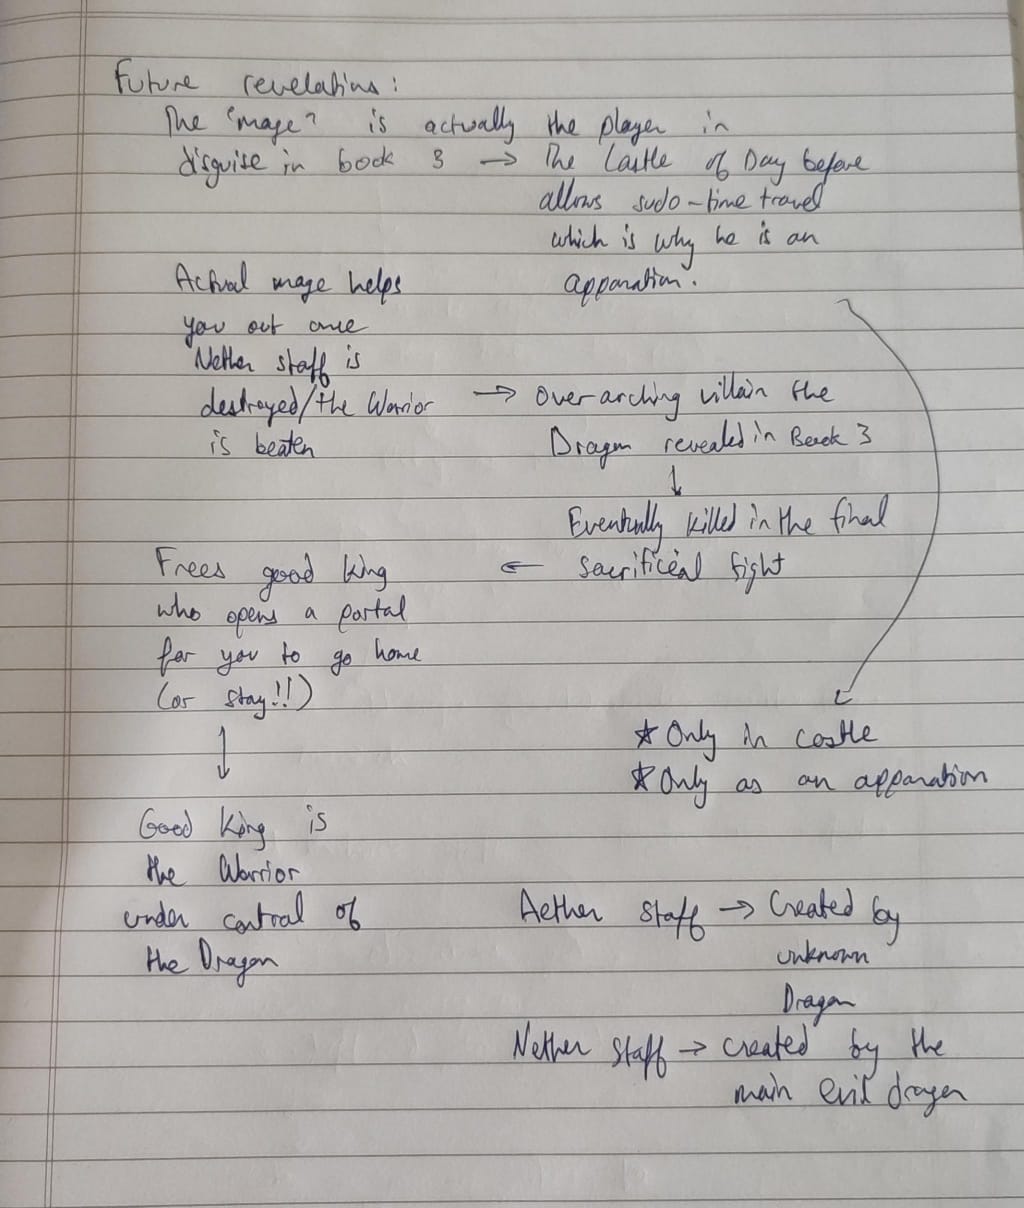 Future revelations:
The "mage" is actually the player in
disguise in book 3 → The Castle of Day before
allows sudo-time travel
which is why he is an
apparation.
Actual mage helps
you out once
Nether staff is
destroyed/the Warrior → Overarching villain the
is beaten
Dragon revealed in Book 3
↓
Eventually killed in the final
sacrificial fight
←
Frees good king
who opens a portal
for you to go home
(or stay!!)
↓
Good King is
the Warrior
under control of
the Dragon
★ Only in castle
★ Only as an apparation
Aether staff → Created by
unknown
Dragon
Nether staff → created by the
main evil dragon